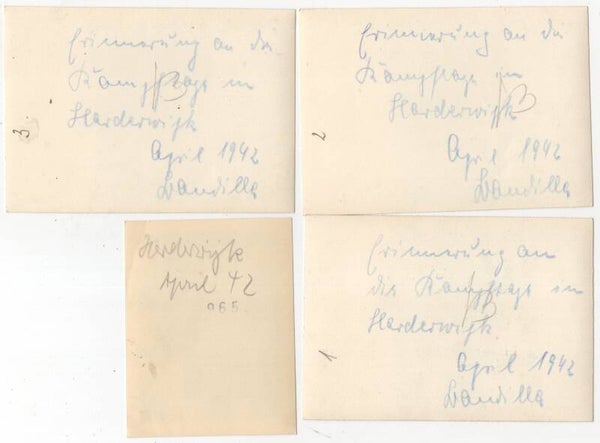 Erinnerung an die
Kampftage in
Harderwijk
April 1942
Bandilla
3
Erinnerung an die
Kampftage in
Harderwijk
April 1942
Bandilla
2
Harderwijk
April 42
065
Erinnerung an
die Kampftage in
Harderwijk
April 1942
Bandilla
1